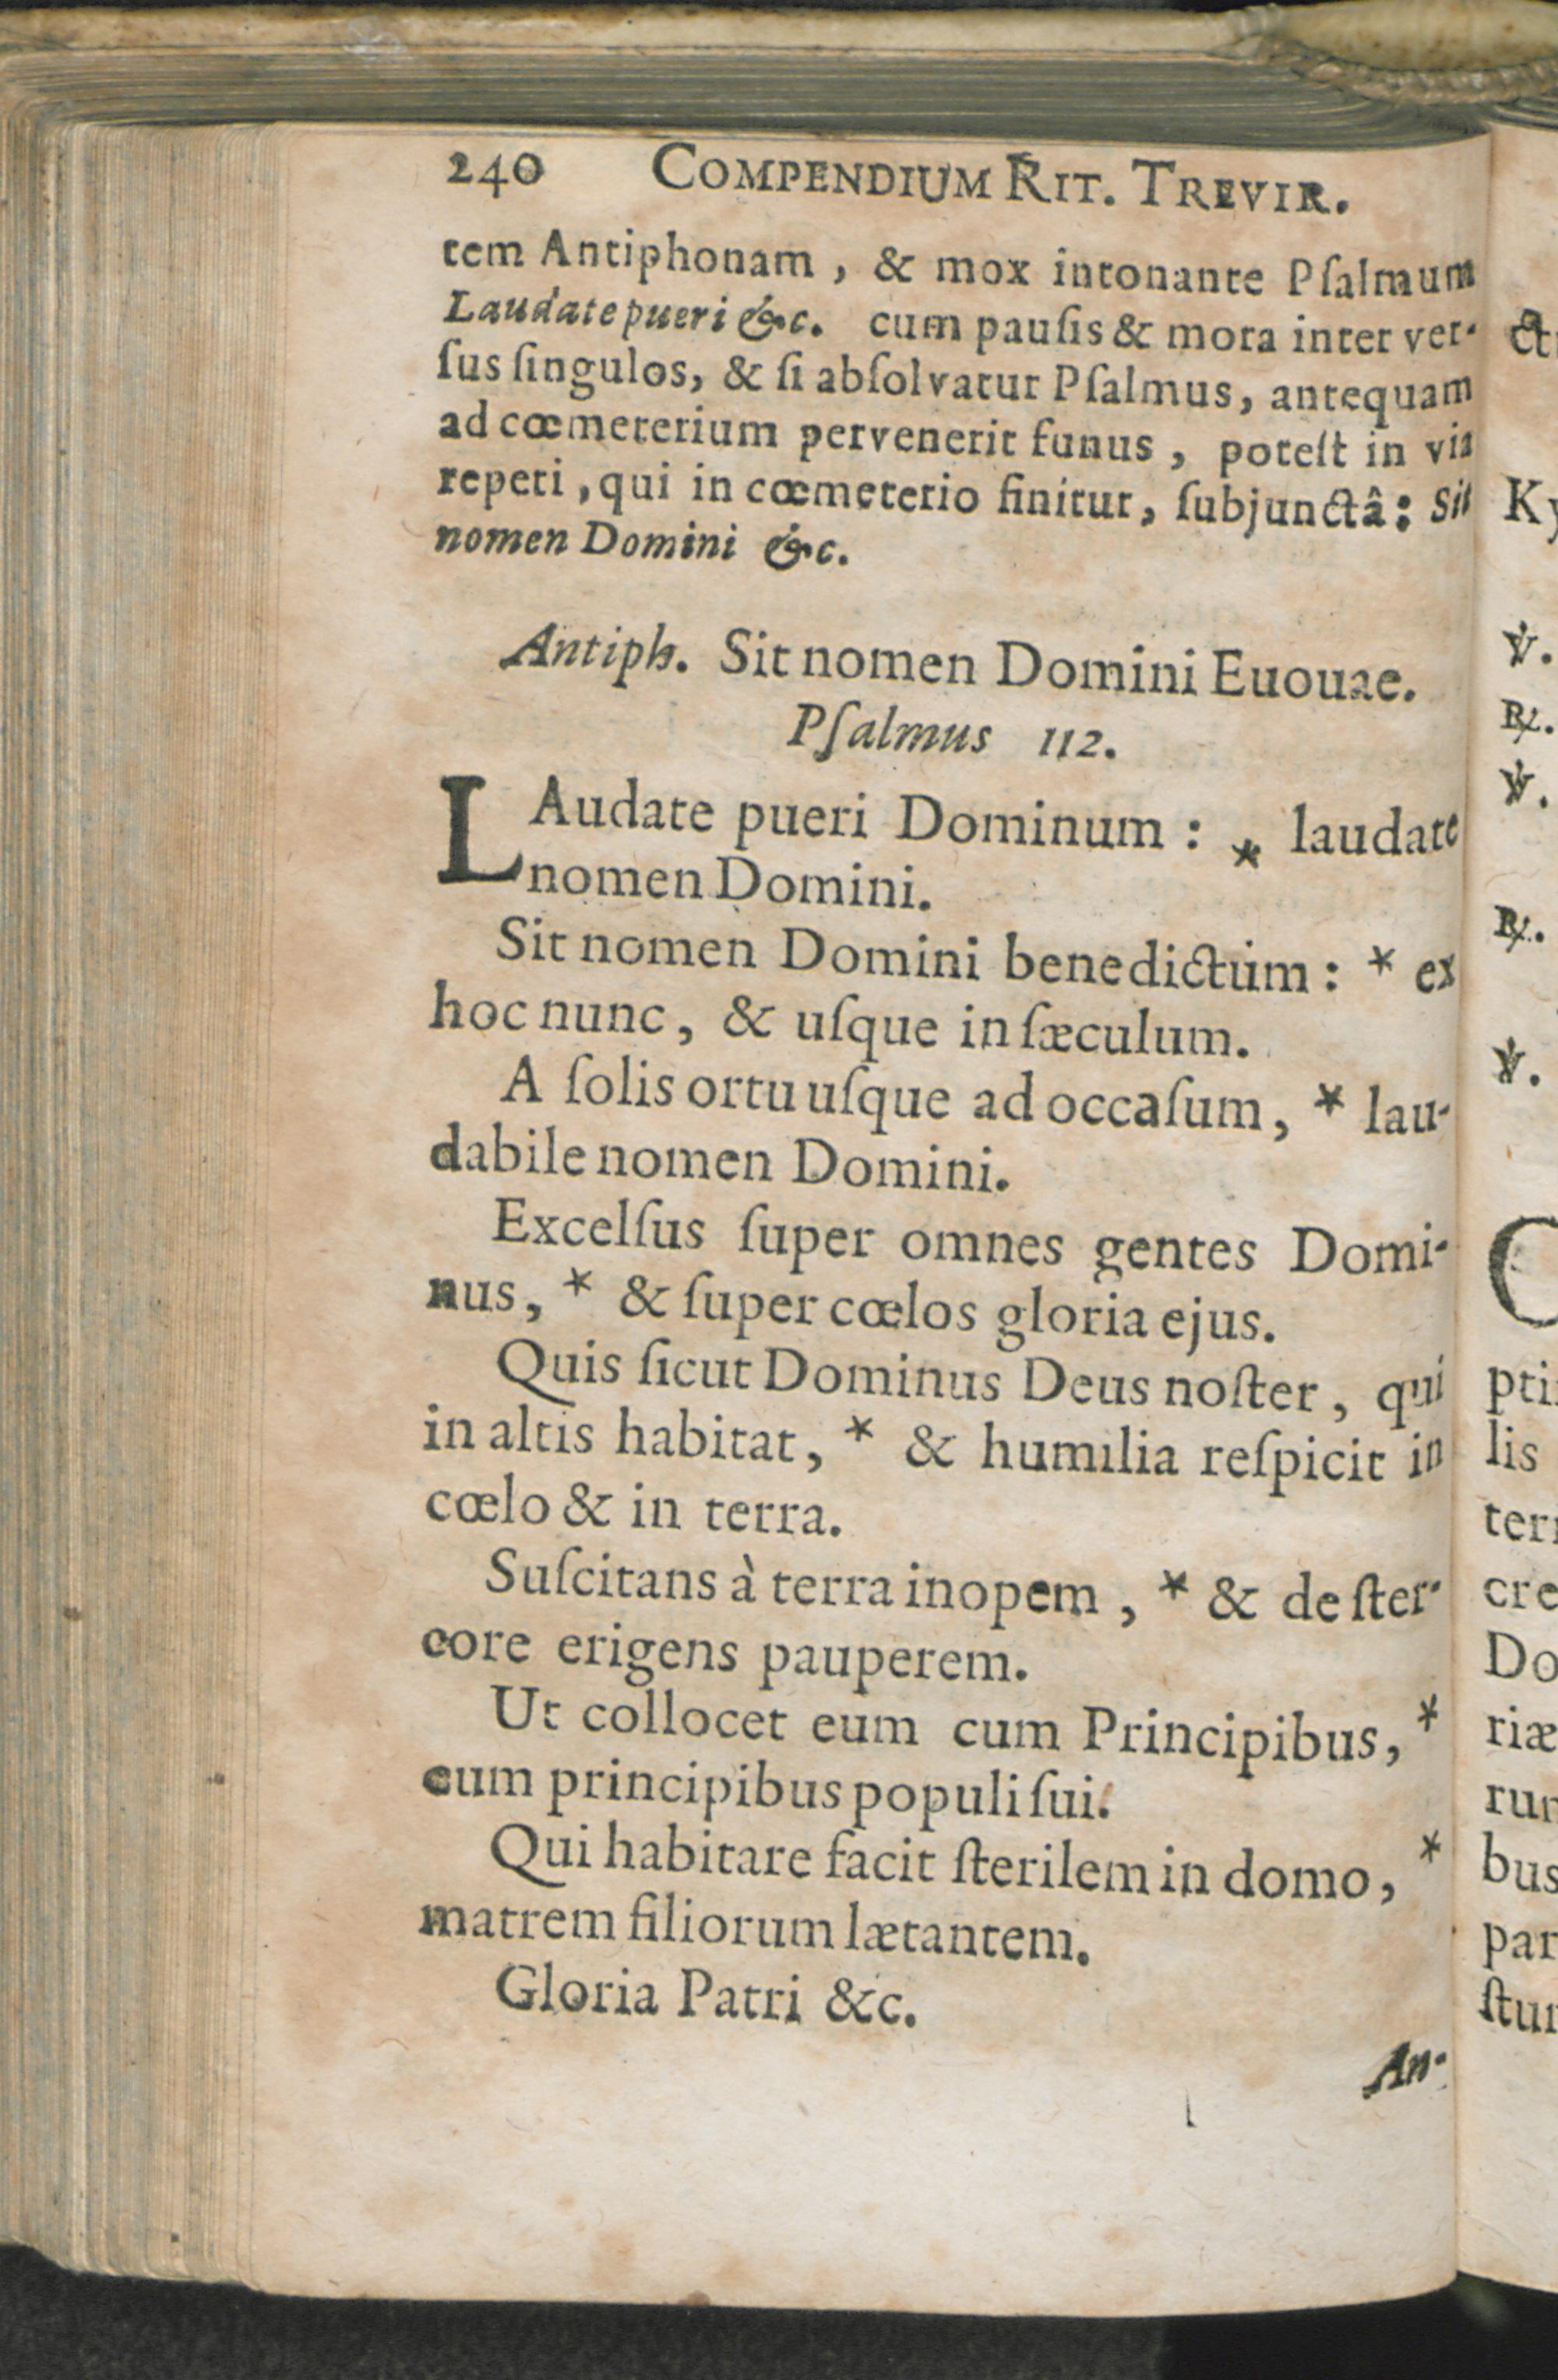 240 COMPENDIUM RIT. TREVIR.
tem Antiphonam, & mox intonante Pſalmum
Laudate pueri &c. cum pauſis & mora inter ver-
ſus ſingulos, & ſi abſolvatur Pſalmus, antequam
ad cœmeterium pervenerit funus, poteſt in via
repeti, qui in cœmeterio finitur, ſubjunctâ: Sit
nomen Domini &c.
Antiph. Sit nomen Domini Euouae.
Pſalmus 112.
LAudate pueri Dominum: * laudate
nomen Domini.
Sit nomen Domini benedictum: * ex
hoc nunc, & uſque in ſæculum.
A ſolis ortu uſque ad occaſum, * lau-
dabile nomen Domini.
Excelſus ſuper omnes gentes Domi-
nus, * & ſuper cœlos gloria ejus.
Quis ſicut Dominus Deus noſter, qui
in altis habitat, * & humilia reſpicit in
cœlo & in terra.
Suſcitans à terra inopem, * & de ſter-
core erigens pauperem.
Ut collocet eum cum Principibus, *
cum principibus populi ſui.
Qui habitare facit ſterilem in domo, *
matrem filiorum lætantem.
Gloria Patri &c.
An-
Ky
℣.
℟.
℣.
℟.
℣.
C
pti
lis
ter
cre
Do
riæ
rur
bus
par
ſtur